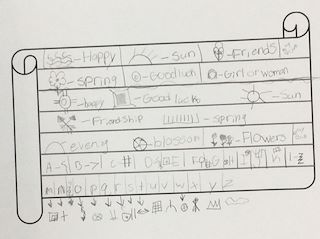 - Happy - Sun - Friends
- Spring - Good luck - Girl or woman
- happy - Good luck - Sun
- Friendship - spring
- evening - blossom - Flowers
A- B-> C # D E F G
m n o p q r s t u v w x y z